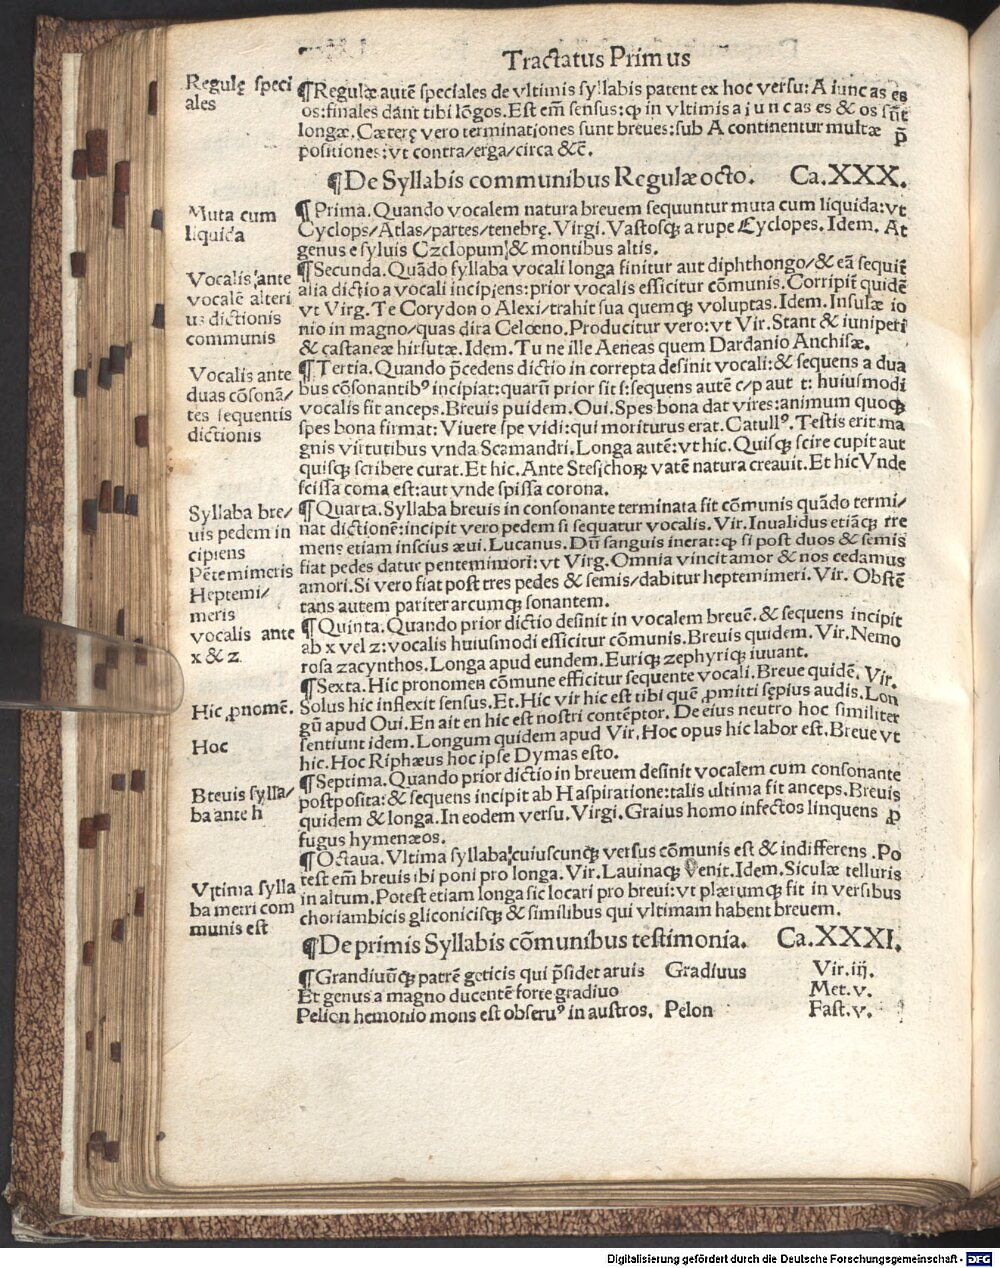 Tractatus Primus
Regulę speci
ales
¶Regulæ autē speciales de vltimis syllabis patent ex hoc versu: A iuncas es
os: finales dant tibi lōgos. Est em̄ sensus: ꝙ in vltimis a i u n c as es & os sūt
longæ. Cæterę vero terminationes sunt breues: sub A continentur multæ p̄
positiones: vt contra/erga/circa &c̄.
¶De Syllabis communibus Regulæ octo. Ca.XXX.
Muta cum
liquida
¶Prima. Quando vocalem natura breuem sequuntur muta cum liquida: vt
Cyclops/Atlas/partes/tenebrę. Virgi. Vastosqꝫ a rupe Cyclopes. Idem. At
genus e syluis Czclopum & montibus altis.
Vocalis ante
vocalē alteri
us dictionis
communis
¶Secunda. Quādo syllaba vocali longa finitur aut diphthongo/& eā sequit̄
alia dictio a vocali incipiens: prior vocalis efficitur cōmunis. Corripit̄ quidē
vt Virg. Te Corydon o Alexi/trahit sua quemqꝫ voluptas. Idem. Insulæ io
nio in magno/quas dira Celœno. Producitur vero: vt Vir. Stant & iuniperi
& castaneæ hirsutæ. Idem. Tu ne ille Aeneas quem Dardanio Anchisæ.
Vocalis ante
duas cōsonā/
tes sequentis
dictionis
¶Tertia. Quando p̄cedens dictio in correpta desinit vocali: & sequens a dua
bus cōsonantibꝰ incipiat: quarū prior sit s: sequens autē c/p aut t: huiusmodi
vocalis fit anceps. Breuis puidem. Oui. Spes bona dat vires: animum quoqꝫ
spes bona firmat: Viuere spe vidi: qui moriturus erat. Catullꝰ. Testis erit ma
gnis virtutibus vnda Scamandri. Longa autē: vt hic. Quisqꝫ scire cupit aut
quisqꝫ scribere curat. Et hic. Ante Stesichorꝝ vatē natura creauit. Et hic Vnde
scissa coma est: aut vnde spissa corona.
Syllaba bre/
uis pedem in
cipiens
Pētemimeris
Heptemi/
meris
¶Quarta. Syllaba breuis in consonante terminata fit cōmunis quādo termi/
nat dictionē: incipit vero pedem si sequatur vocalis. Vir. Inualidus etiāqꝫ tre
mens etiam inscius æui. Lucanus. Dū sanguis inerat: ꝙ si post duos & semis
fiat pedes datur pentemimori: vt Virg. Omnia vincit amor & nos cedamus
amori. Si vero fiat post tres pedes & semis/dabitur heptemimeri. Vir. Obstē
tans autem pariter arcumqꝫ sonantem.
vocalis ante
x & z
¶Quinta. Quando prior dictio desinit in vocalem breuē. & sequens incipit
ab x vel z: vocalis huiusmodi efficitur cōmunis. Breuis quidem. Vir. Nemo
rosa zacynthos. Longa apud eundem. Euriqꝫ zephyriqꝫ iuuant.
Hic ꝓnomē.
Hoc
¶Sexta. Hic pronomen cōmune efficitur sequente vocali. Breue quidē. Vir.
Solus hic inflexit sensus. Et. Hic vir hic est tibi quē ꝓmitti sępius audis. Lon
gū apud Oui. En ait en hic est nostri contēptor. De eius neutro hoc similiter
sentiunt idem. Longum quidem apud Vir. Hoc opus hic labor est. Breue vt
hic. Hoc Riphæus hoc ipse Dymas esto.
Breuis sylla/
ba ante h
¶Septima. Quando prior dictio in breuem desinit vocalem cum consonante
postposita: & sequens incipit ab H aspiratione: talis ultima fit anceps. Breuis
quidem & longa. In eodem versu. Virgi. Graius homo infectos linquens ꝓ
fugus hymenæos.
Vltima sylla
ba metri com
munis est
¶Octaua. Vltima syllaba cuiuscunqꝫ versus cōmunis est & indifferens. Po
test em̄ breuis ibi poni pro longa. Vir. Lauinaqꝫ Venit. Idem. Siculæ telluris
in altum. Potest etiam longa sic locari pro breui: vt plærumqꝫ fit in versibus
choriambicis gliconicisqꝫ & similibus qui vltimam habent breuem.
¶De primis Syllabis cōmunibus testimonia. Ca.XXXI.
¶Grandiuūqꝫ patrē geticis qui p̄sidet aruis Gradiuus Vir.iij.
Et genus a magno ducentē forte gradiuo Met.v.
Pelion hemonio mons est obseruꝰ in austros. Pelon Fast.v.
Digitalisierung gefördert durch die Deutsche Forschungsgemeinschaft - DFG